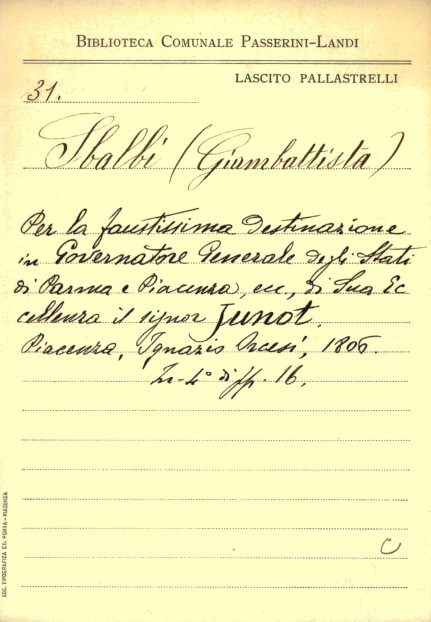 BIBLIOTECA COMUNALE PASSERINI-LANDI
LASCITO PALLASTRELLI
31.
Sbalbi (Giambattista)
Per la faustissima destinazione
in Governatore Generale degli Stati
di Parma e Piacenza, ecc., di Sua Ec
cellenza il signor Junot.
Piacenza, Ignazio Orcesi, 1806.
In-4° di pp. 16.
C
SOC. TIPOGRAFICA ED. PORTA - PIACENZA